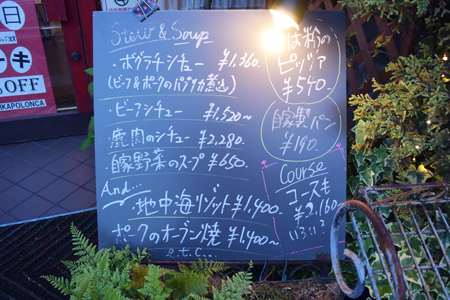 Stew & Soup
・ボグラチシチュー ¥1.360.
(ビーフ&ポークのパプリカ煮込)
・ビーフシチュー ¥1,520~
・鹿肉のシチュー ¥2,280.
・自家野菜のスープ ¥650.
And...
・地中海リゾット ¥1,400.
・ポークのオーブン焼 ¥1,400~
e.t.c...
ピッツア
¥540.
自家製パン
¥190.
Course
コースも
¥3.160
いろいろ
日
キ
%OFF
KAPOLONCA